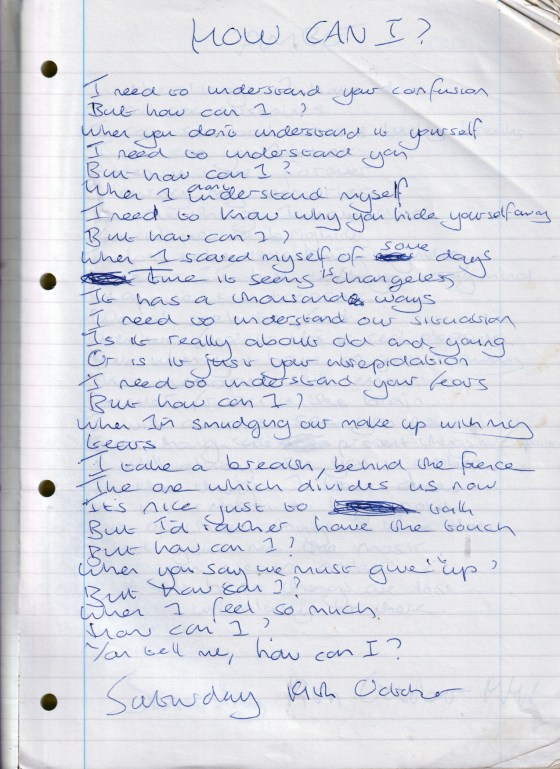 HOW CAN I?
I need to understand your confusion
But how can I ?
When you don't understand it yourself
I need to understand you
But how can I ?
When I don't understand myself
I need to know why you hide yourself away
But how can I ?
When I scared myself of some days
Time it seems is changeless
It has a thousand ways
I need to understand our situation
Is it really about old and young
Or is it just your intrepidation
I need to understand your fears
But how can I ?
When I'm smudging our make up with my
tears
I take a breath, behind the fence
The one which divides us now
It's nice just to talk
But I'd rather have the touch
But how can I ?
When you say we must give it up ?
But how can I ?
When I feel so much
How can I ?
You tell me, how can I ?
Saturday October